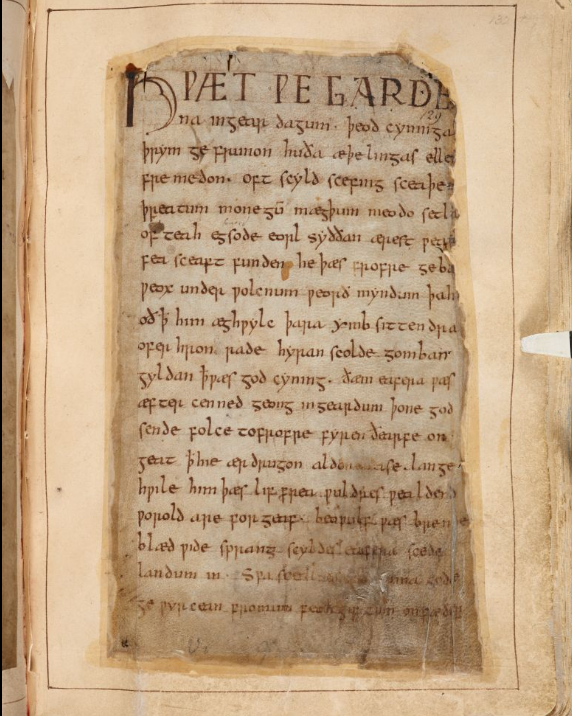 HǷÆT ǷE GARDE
129
na ingear dagum. þeod cyninga
þrym ge frunon huða æþelingas elle
fre medon. oft scyld scefing sceaþe
þreatum monegū mægþum meodo setla
of teah egsode eorl syððan ærest ƿear
fea sceaft funden he þæs frofre geba
ƿeox under ƿolcnum ƿeorð myndum þah
oð ꝥ him æghƿylc þara ymb sittendra
ofer hron rade hyran scolde gomban
gyldan ꝥ ƿæs god cyning. ðæm eafera ƿæs
æfter cenned geong in geardum þone god
sende folce tofrofre fyren ðearfe on
geat ꝥ hie ær drugon aldor ase. lange
hƿile him þæs lif frea ƿuldres ƿealdend
ƿorold are for geaf. beoƿulf ƿæs breme
blæd ƿide sprang scyldes eafera scede
landum in. Sƿa sceal guma gode
ge ƿyrcean fromum feoh giftum on fæder